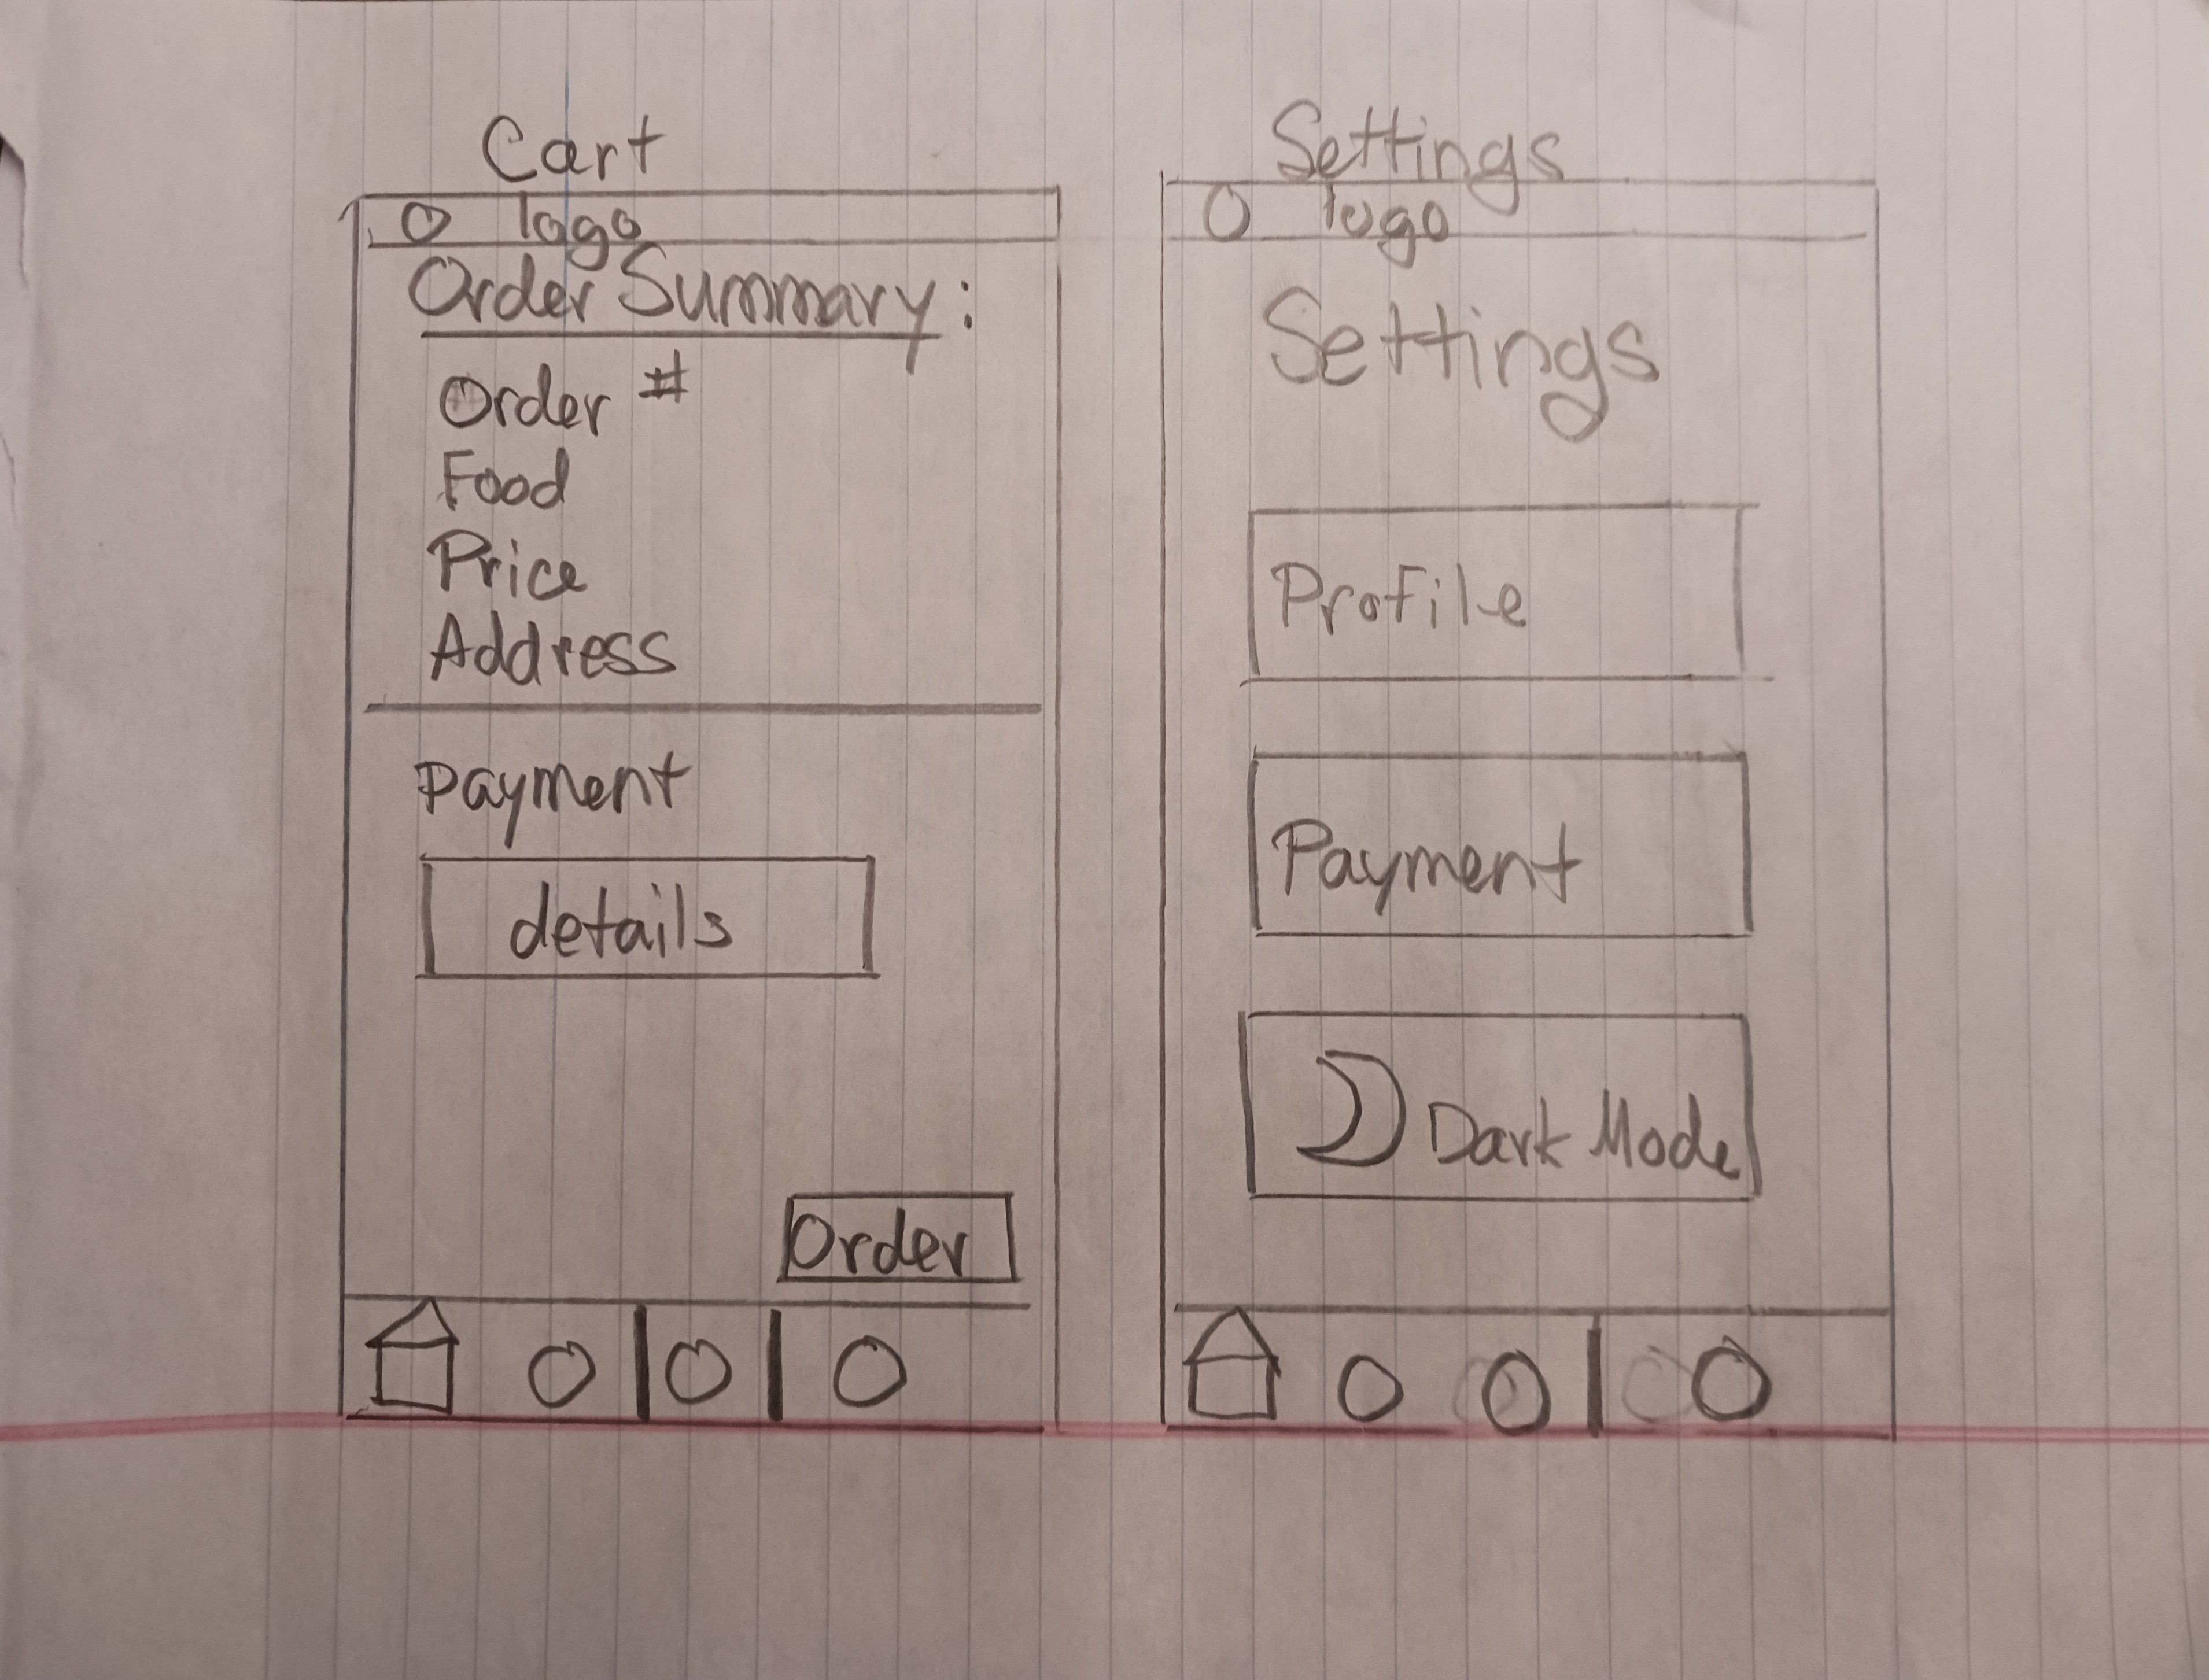 Cart
logo
Order Summary:
Order #
Food
Price
Address
Payment
details
Order
Settings
logo
Settings
Profile
Payment
Dark Mode